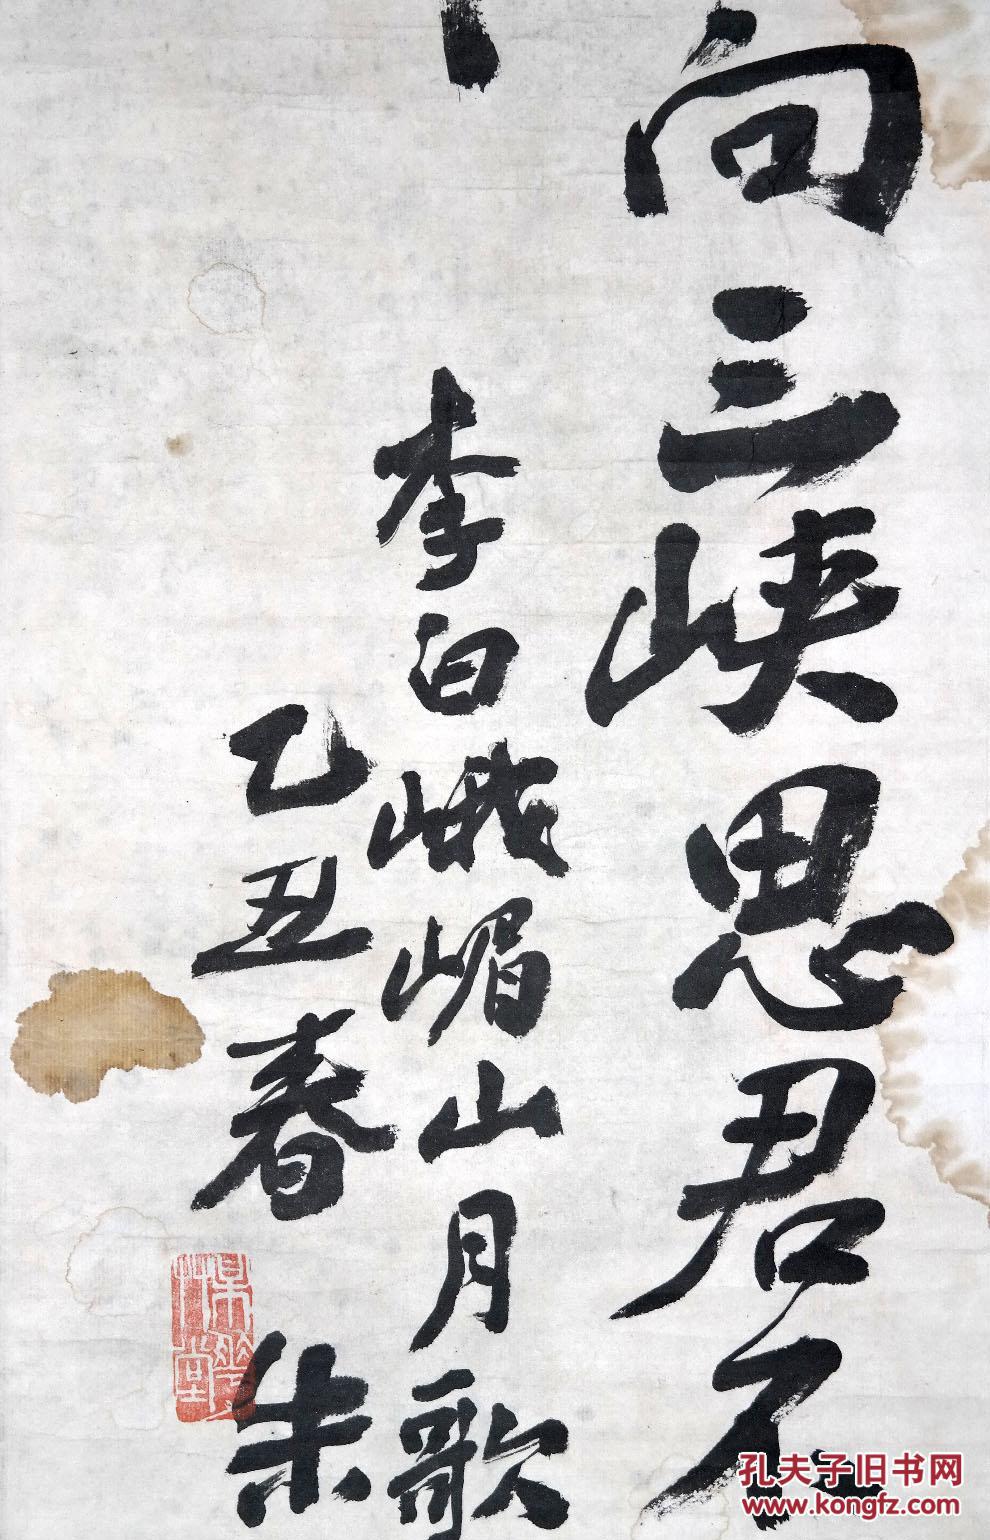 向三峡思君不
李白峨嵋山月歌
乙丑春 朱
孔夫子旧书网
www.kongfz.com